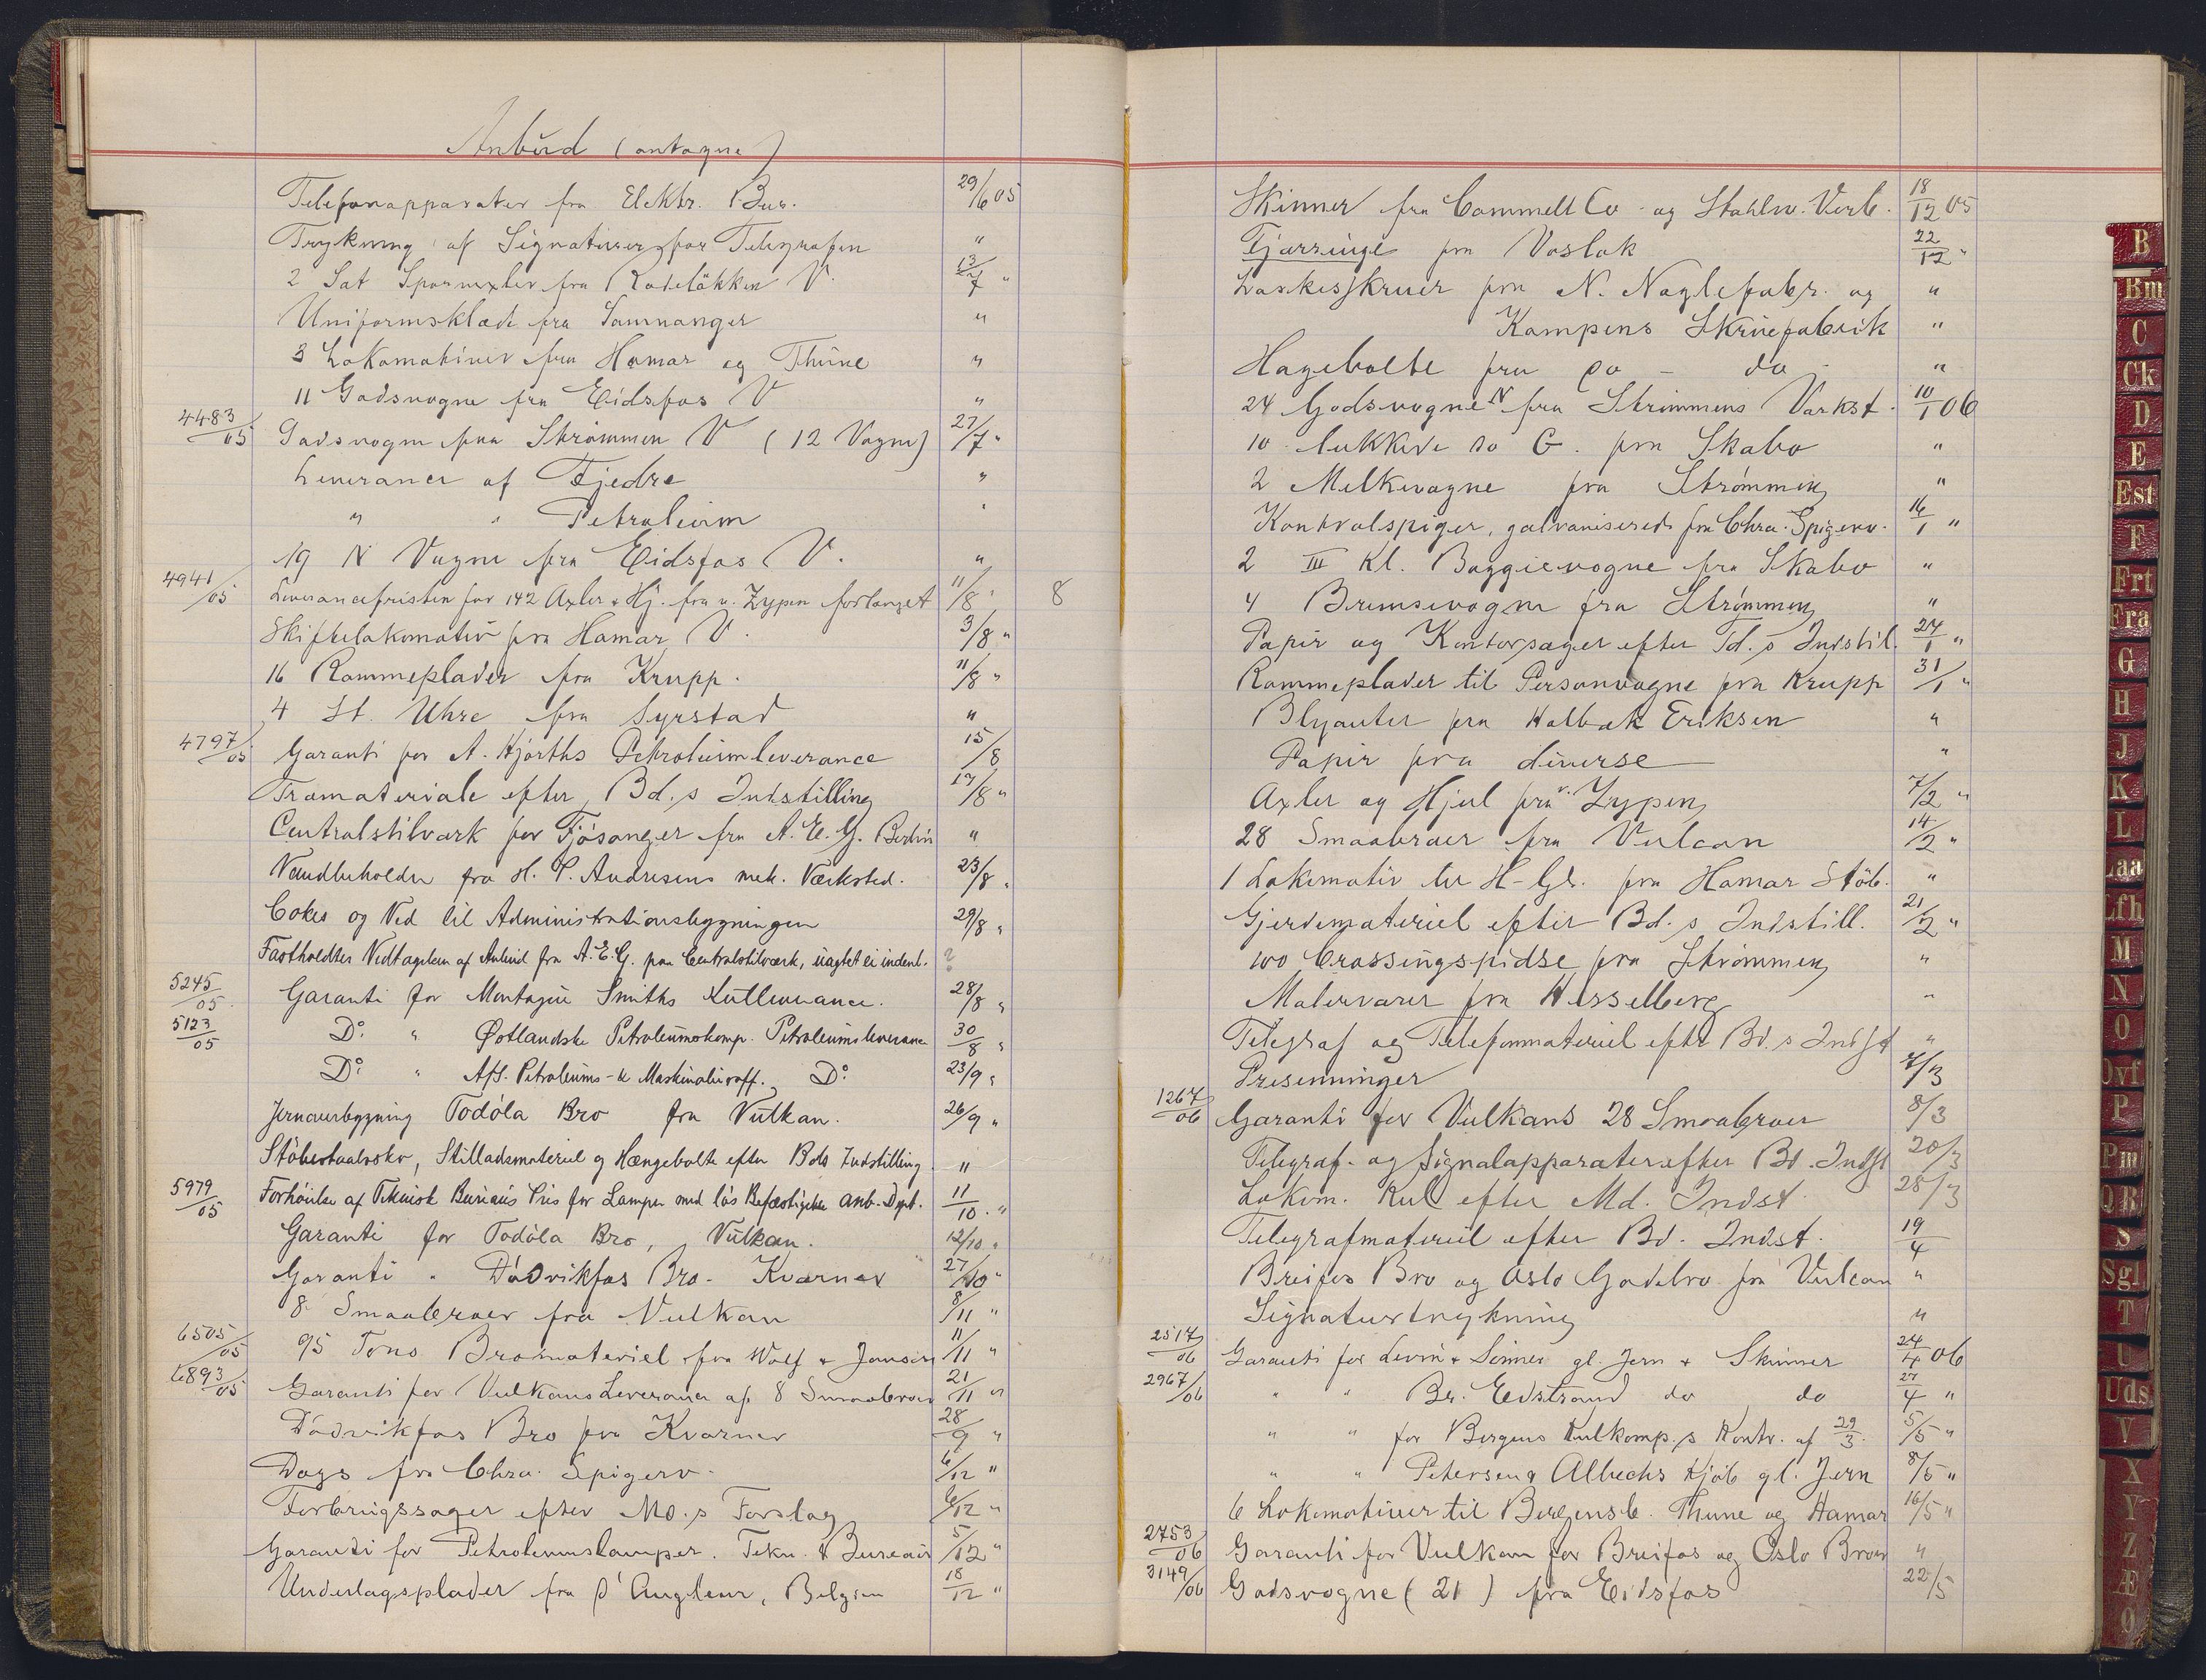 Anbud (antagne)
Telefonapparater fra Elektr. Bur. 29/6 05
Trykning af Signaturer for Telegrafen "
2 Sæt Sporvexler fra Rodeløkken V. 13/7 "
Uniformsklæde fra Samnanger "
3 Lokomotiver fra Hamar og Thune "
11 Godsvogne fra Eidsfos V "
4483/05 Godsvogne fra Strømmen V (12 Vogne) 27/7 "
Leverance af Fjedre "
" " Petroleum "
19 N Vogne fra Eidsfos V. "
4941/05 Leverancefristen for 142 Axler + Hj. fra v. Zypen forlænget 11/8 " 8
Skiftelokomotiv fra Hamar V. 3/8 "
16 Rammeplader fra Krupp. 11/8 "
4 St. Uhre fra Syrstad "
4797/05 Garanti for A. Hjorths Petroleumleverance 15/8
Træmateriale efter Bd.s Indstilling 17/8 "
Centralstilværk for Fjøsanger fra A. E. G. Berlin "
Vandbeholder fra H. P. Andresens mek. Værksted. 23/8 "
Cokes og Ved til Administrationsbygningen 29/8 "
Fastholdtes Vedtagelsen af Anbud fra A.E.G. paa Centralstilværk, uagtet ei indenl. ?
5245/05 Garanti for Montague Smiths Kulleverance. 28/8 "
5123/05 Do. " Østlandske Petroleumskomp. Petroleumsleverance 30/8 "
Do. " A/S. Petroleums- & Maskinolieraff. Do. 23/9 "
Jernoverbygning Todøla Bro fra Vulkan. 26/9 "
Støbestaalsko, Stilladsmateriel og Hængebolte efter Bds Indstilling "
5979/05 Forhøielse af Teknisk Bureaus Pris for Lamper med løs Befæstigelse anb. Dpt. 11/10. "
Garanti for Todøla Bro, Vulkan. 12/10 "
Garanti " Dødvikfos Bro - Kværner 27/10 "
8 Smaabroer fra Vulkan 8/11 "
6505/05 95 Tons Bromateriel fra Wolf & Jansen 11/11 "
6893/05 Garanti for Vulkans Leverance af 8 Smaabroer 21/11 "
Dødvikfos Bro fra Kværner 28/9 "
Dogs fra Chra. Spigerv. 6/12 "
Forbrugssager efter Md.s Forslag 6/12 "
Garanti for Petroleumslamper. Tekn. Bureau 5/12 "
Underlagsplader fra d'Angleur, Belgien 18/12 "
Skinner fra Cammell Co og Stahlw. Verb. 18/12 05
Tjærringe fra Voslok 22/12 "
Laskeskruer fra N. Naglefabr. og "
Kampens Skruefabrik "
Hagebolte fra do - do - "
24 Godsvogne N fra Strømmens Værkst. 10/1 06
10 lukkede do G. fra Skabo "
2 Melkevogne fra Strømmen "
Kontrolspiger, galvaniserede fra Chra. Spigerv. 16/1 "
2 III Kl. Boggievogne fra Skabo "
4 Bremsevogne fra Strømmen "
Papir og Kontorsager efter Td.s Indstil. 24/1 "
Rammeplader til Personvogne fra Krupp 31/1 "
Blyanter fra Holbæk Eriksen "
Papir fra diverse "
Axler og Hjul fra v. Zypen 7/2 "
28 Smaabroer fra Vulcan 14/2 "
1 Lokomotiv til H-Gb. fra Hamar Støb. "
Gjerdemateriel efter Bd.s Indstill. 21/2 "
100 Crossingspidse fra Strømmen "
Malervarer fra Hesselberg "
Telegraf og Telefonmateriel efter Bd.s Indst "
Presenninger 7/3
1267/06 Garanti for Vulkans 28 Smaabroer 8/3
Telegraf- og Signalapparater efter Bd. Indst 20/3
Lokom. Kul efter Md. Indst. 28/3
Telegrafmateriel efter Bd. Indst. 19/4
Breifos Bro og Oslo Gadebro fra Vulcan "
Signaturtrykning "
2517/06 Garanti for Levin & Sönner gl. Jern & Skinner 24/4 06
2967/06 " " Br. Edstrand do do 27/4 "
" " for Bergens Kulkomp.s Kontr. af 29/3. 5/5 "
" " Petersen & Albecks Kjøb gl. Jern 8/5 "
6 Lokomotiver til Bergensb. Thune og Hamar 16/5 "
2753/06 Garanti for Vulkan for Breifos og Oslo Broer "
3149/06 Godsvogne (21) fra Eidsfos 22/5
B
Bm
C
Ck
D
E
Est
F
Frt
Fra
G
H
J
K
L
Laa
Lfh
M
N
O
Ovf
P
Pm
Q R
S
Sgl
T
U
Uds
V
X
Y
Z
Æ
Ø